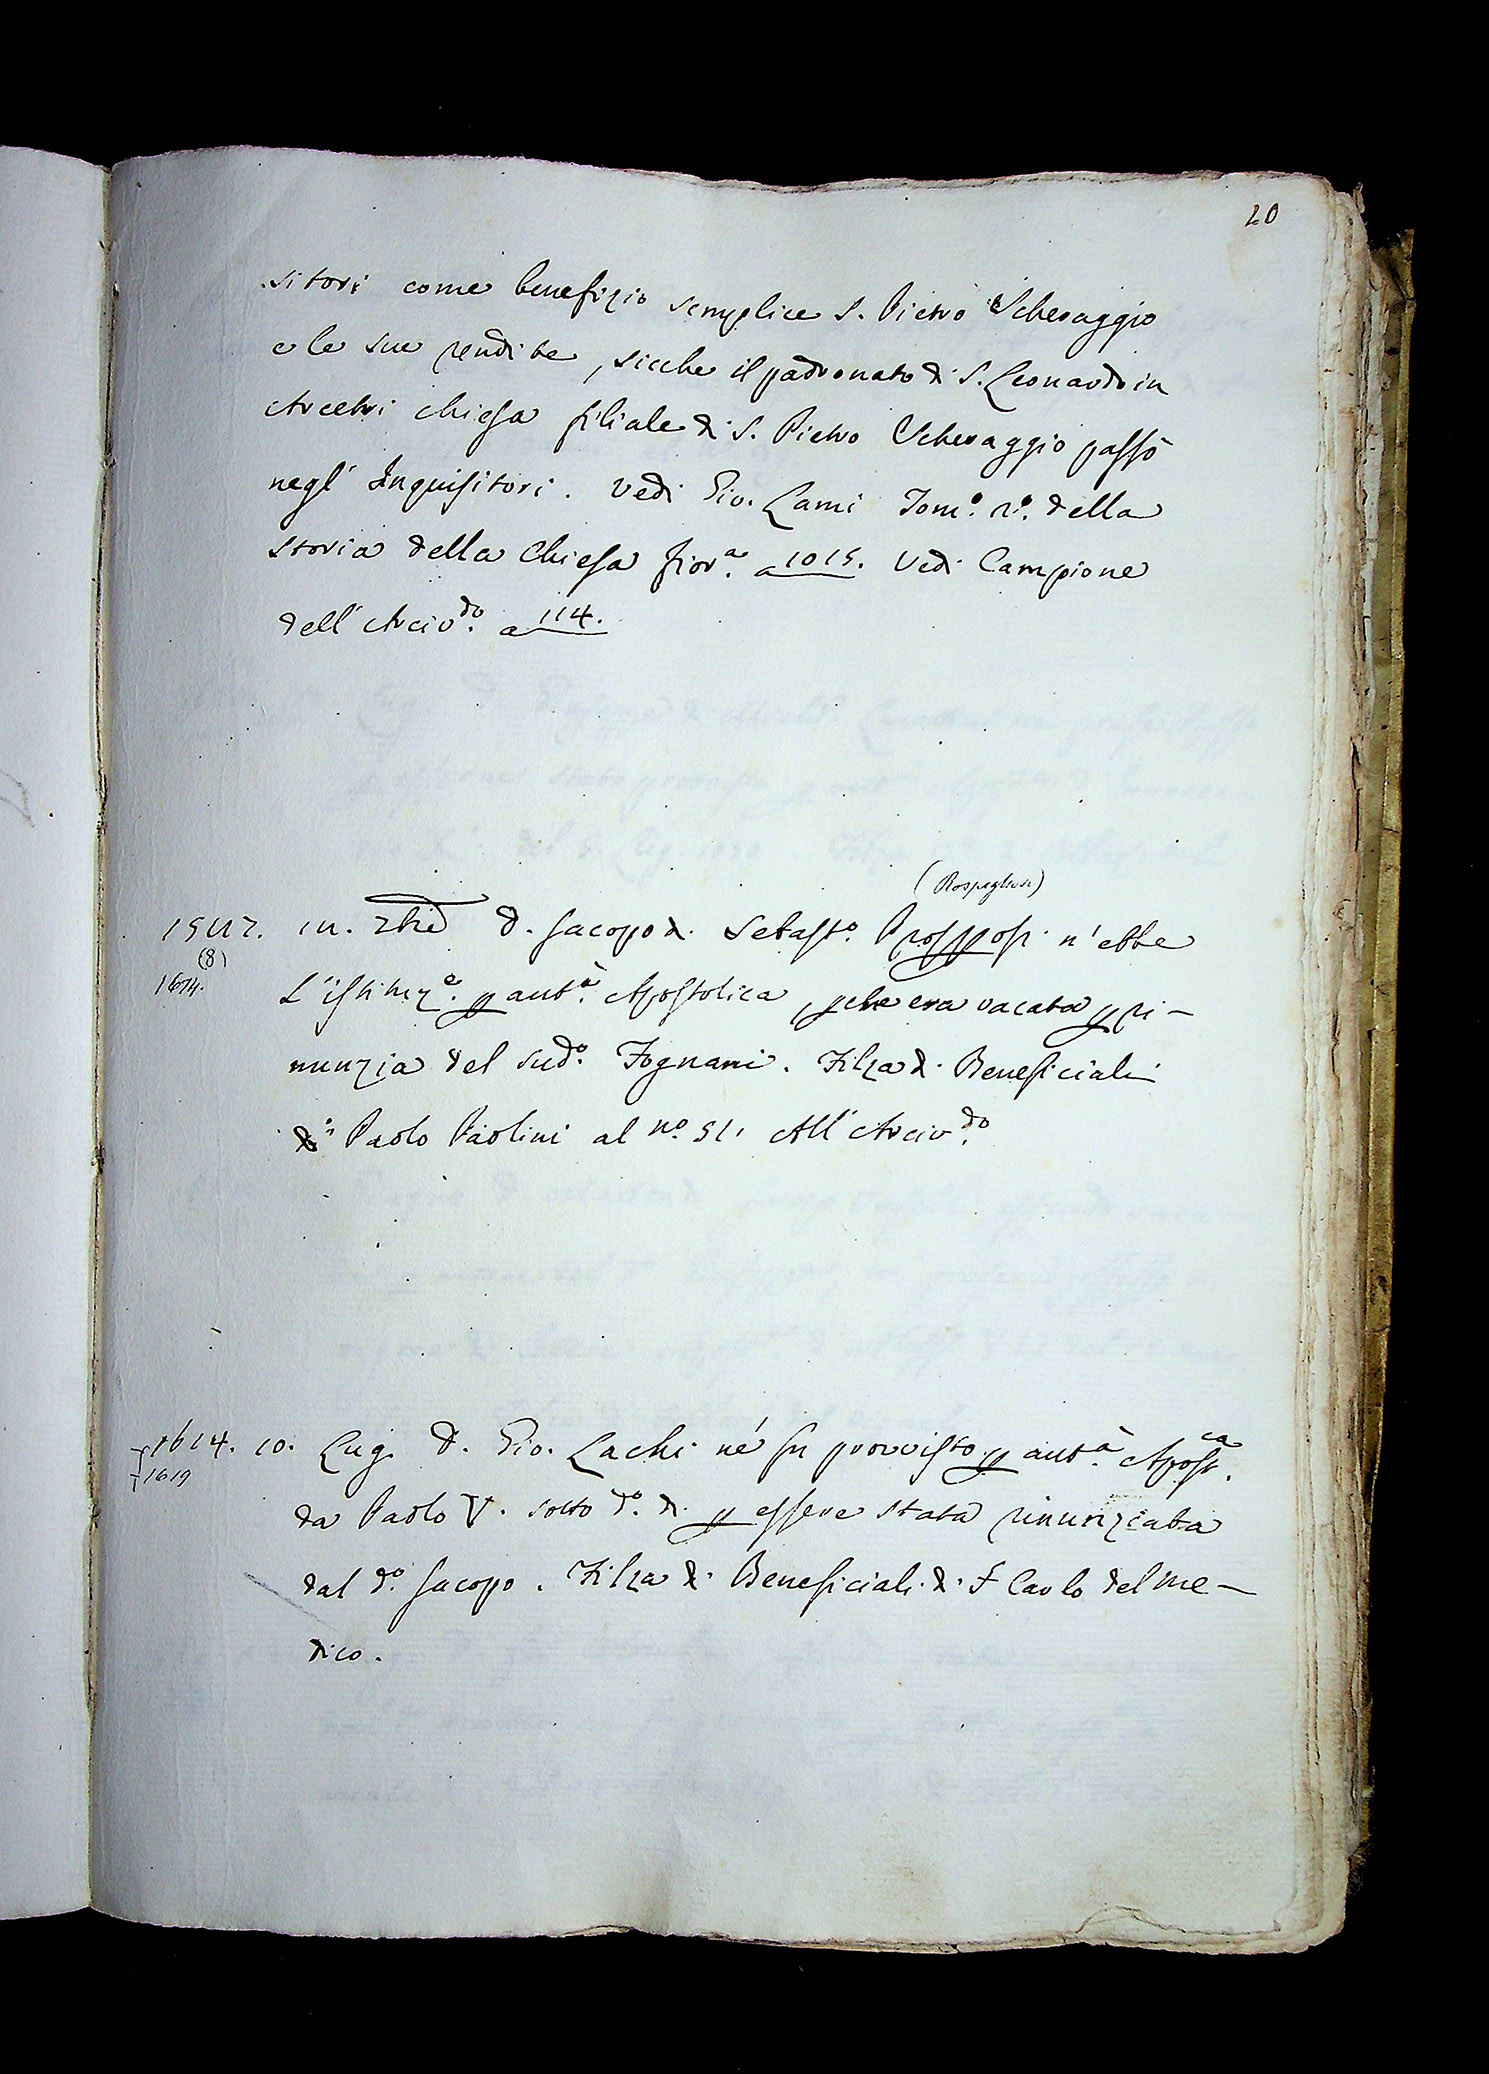 20
sitori come benefizio semplice S. Pietro Scheraggio
e le sue rendite, sicche il padronato di S. Leonardo in
Arcetri chiesa filiale di S. Pietro Scheraggio passò
negl' Inquisitori. Vedi Gio. Lami Tom.o 2.o della
storia della Chiesa fior.a a 1015. Vedi Campione
dell' Arciv.do a 114.
(Rospigliosi)
D. Jacopo di Sebast.o n' ebbe
(8)
1614.
L' istituz.e p aut.à Apostolica, pche era vacata p ri-
nunzia del sud.o Fognani. Filza di Beneficiali
di Paolo Paolini al n.o 51. All' Arciv.do
1614. 10. Lug. D. Gio. Lachi né fu provvisto p aut.à Apost.ca
†1619
da Paolo V. sotto d.o dì p essere stata rinunziata
dal d.o Jacopo. Filza di Beneficiali di S Carlo del me-
dico.